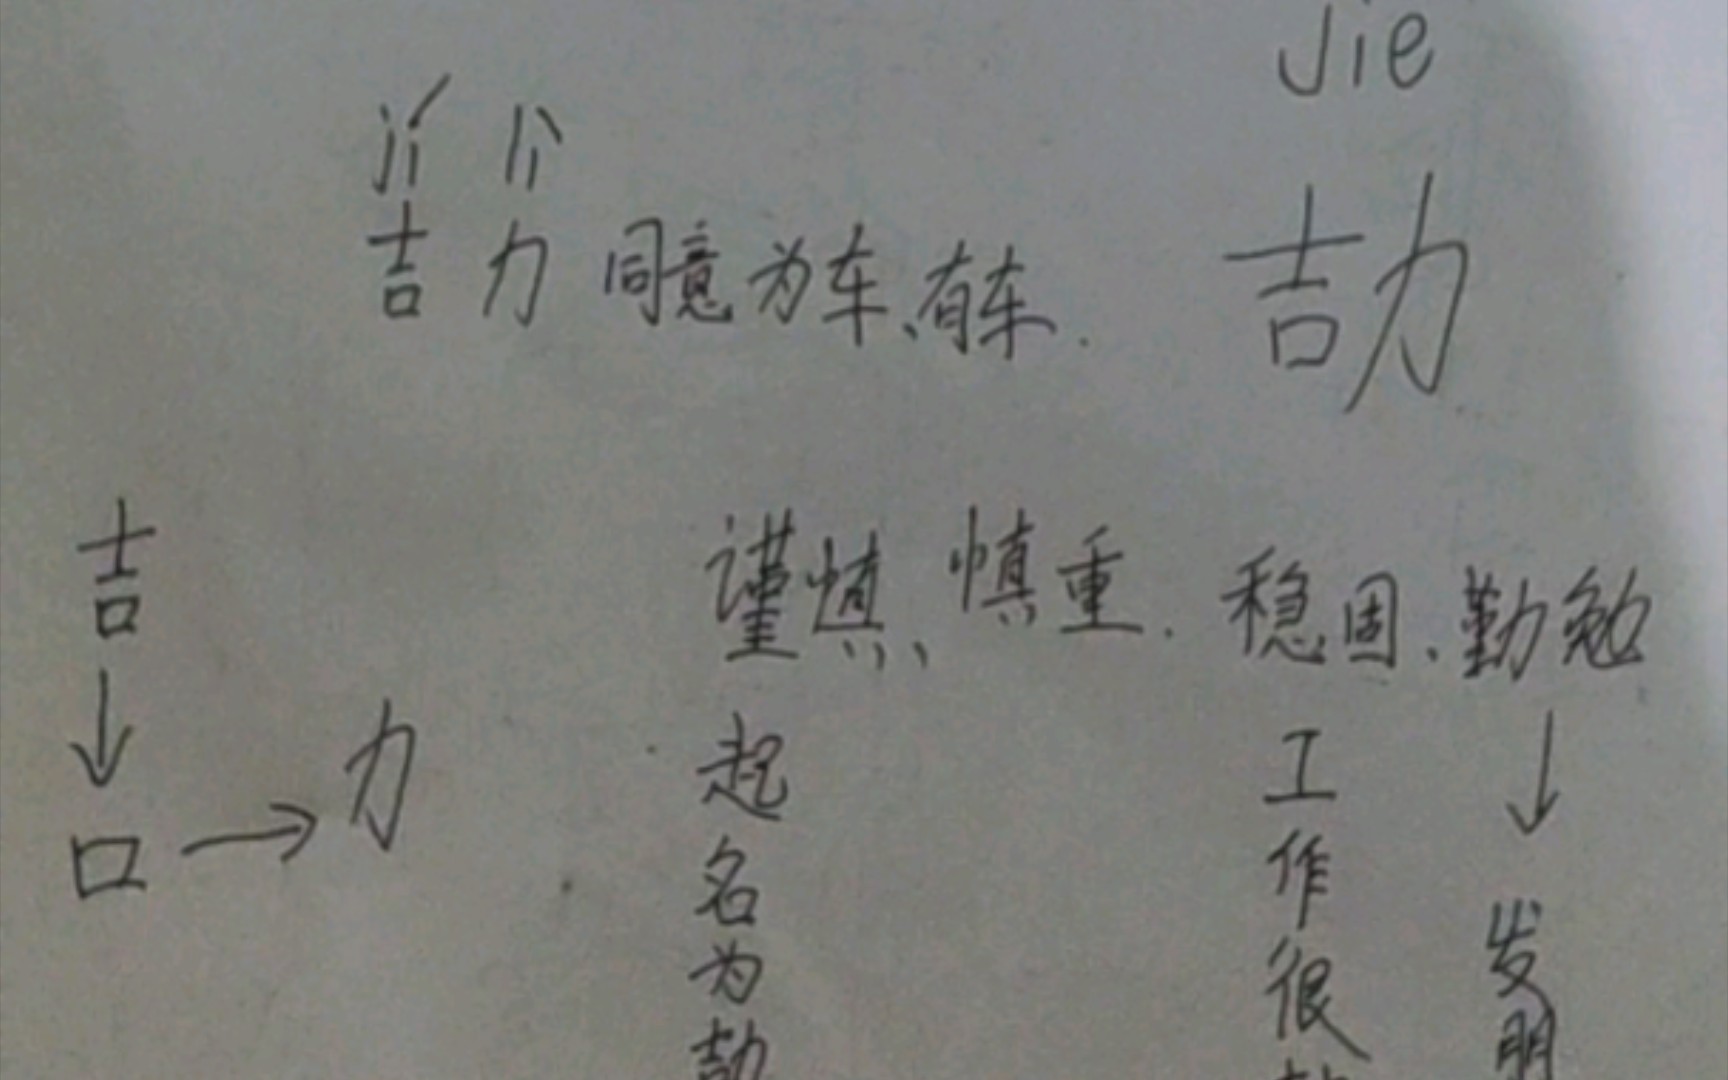 Jie
jí lì
吉 力 同意为车、有车. 劼
吉
↓
口 → 力
谨慎、慎重. 稳固、勤勉
起名为劼
工作很
↓
发明